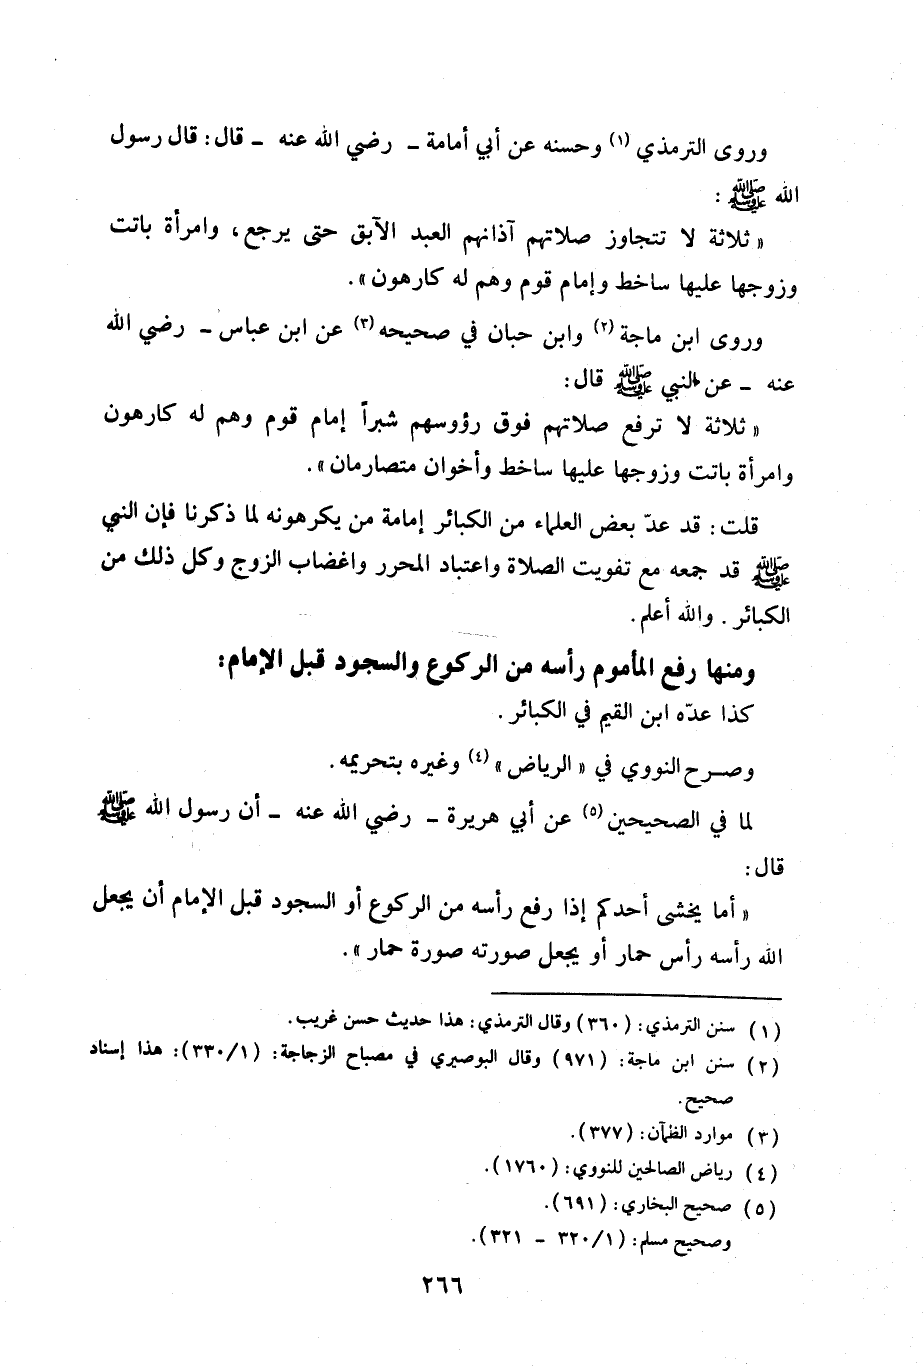 وروى الترمذي (١) وحسنه عن أبي أمامة ـ رضي الله عنه ـ قال: قال رسول
الله ﷺ :
« ثلاثة لا تتجاوز صلاتهم آذانهم العبد الآبق حتى يرجع، وامرأة باتت
وزوجها عليها ساخط وإمام قوم وهم له كارهون ».
وروى ابن ماجة (٢) وابن حبان في صحيحه (٣) عن ابن عباس ـ رضي الله
عنه ـ عن النبي ﷺ قال:
« ثلاثة لا ترفع صلاتهم فوق رؤوسهم شبراً إمام قوم وهم له كارهون
وامرأة باتت وزوجها عليها ساخط وأخوان متصارمان ».
قلت: قد عدّ بعض العلماء من الكبائر إمامة من يكرهونه لما ذكرنا فإن النبي
ﷺ قد جمعه مع تفويت الصلاة واعتباد المحرر واغضاب الزوج وكل ذلك من
الكبائر . والله أعلم.
ومنها رفع المأموم رأسه من الركوع والسجود قبل الإمام:
كذا عدّه ابن القيم في الكبائر .
وصرح النووي في « الرياض » (٤) وغيره بتحريمه.
لما في الصحيحين (٥) عن أبي هريرة ـ رضي الله عنه ـ أن رسول الله ﷺ
قال:
« أما يخشى أحدكم إذا رفع رأسه من الركوع أو السجود قبل الإمام أن يجعل
الله رأسه رأس حمار أو يجعل صورته صورة حمار ».
(١) سنن الترمذي: (٣٦٠) وقال الترمذي: هذا حديث حسن غريب.
(٢) سنن ابن ماجة: (٩٧١) وقال البوصيري في مصباح الزجاجة: (٣٣٠/١): هذا إسناد
صحيح.
(٣) موارد الظمآن: (٣٧٧).
(٤) رياض الصالحين للنووي: (١٧٦٠).
(٥) صحيح البخاري: (٦٩١).
وصحيح مسلم: (٣٢٠/١ ـ ٣٢١).
٢٦٦